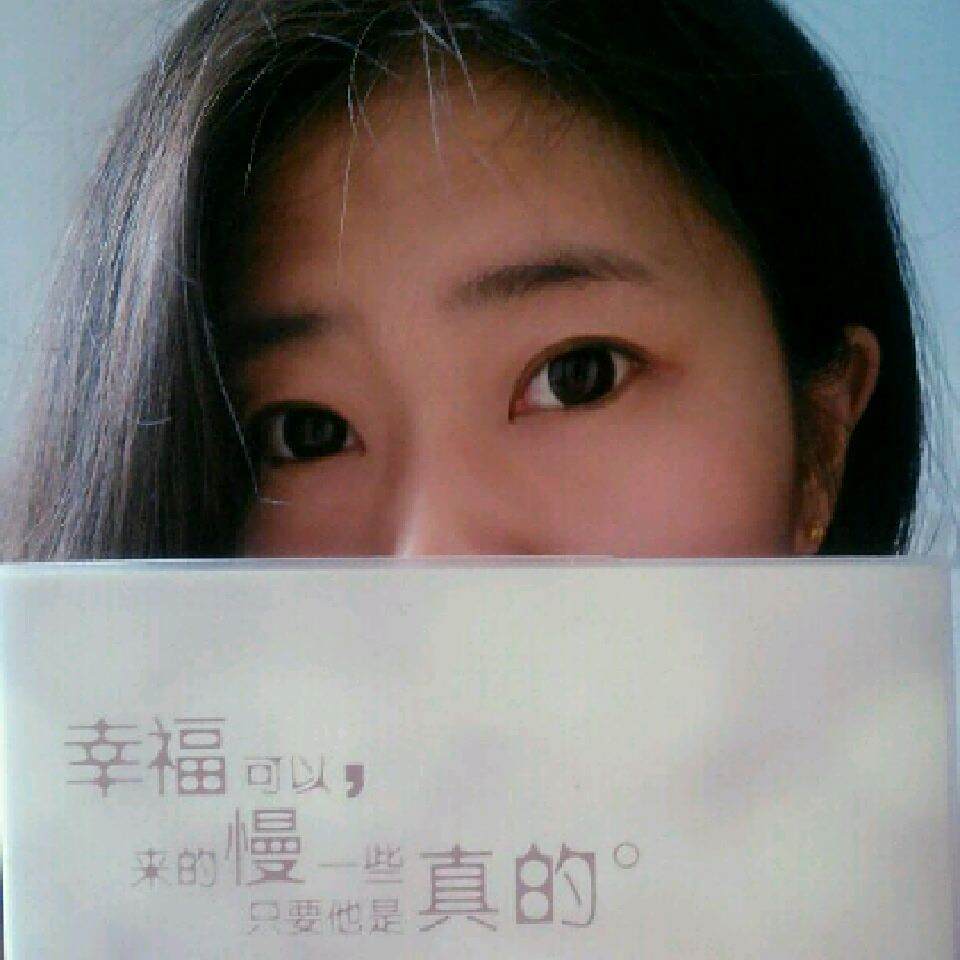 幸福可以，
来的慢一些
只要他是真的。